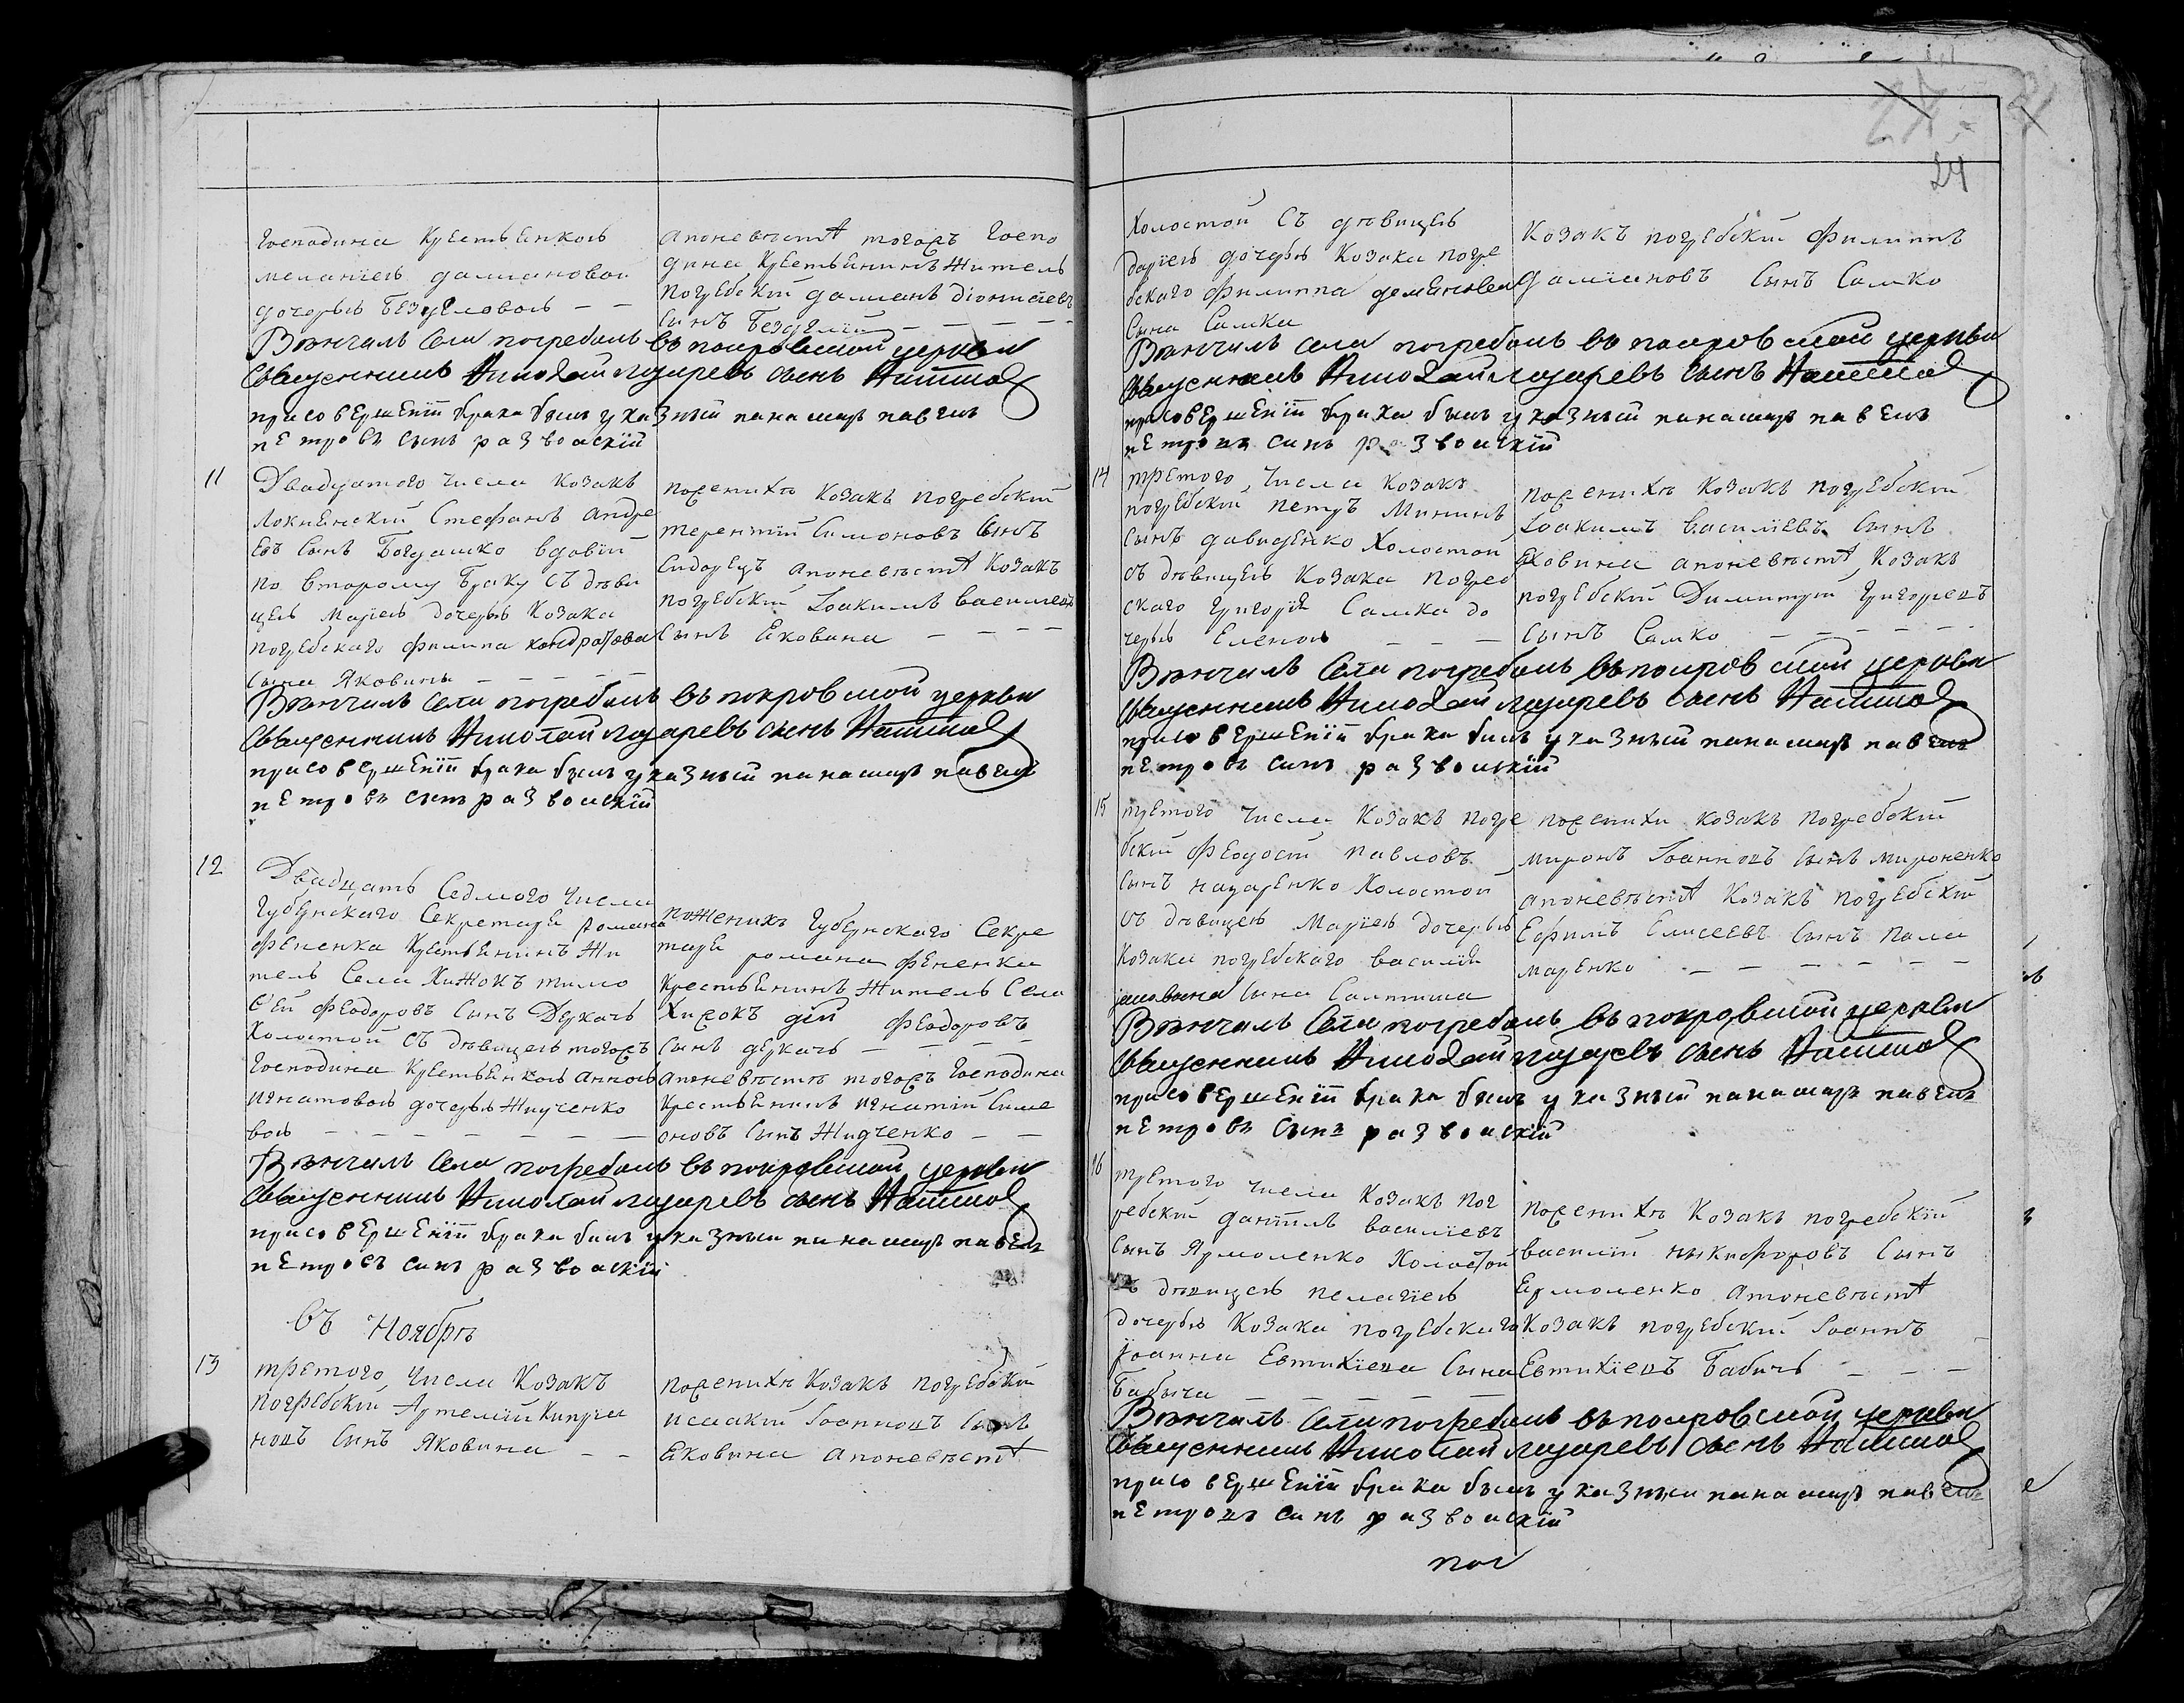 24
Господина Крестьянкою
меланіею даміановой
дочерью Безуглового — —
апоневѣстѣ тогожъ Госпо
дина Крестьянинъ житель
Погребскій даміанъ діонисіевъ
сынъ — — — —
Вѣнчалъ села погребовъ въ покровской церкви
священникъ Николай лазаревъ сынъ
присовершеніи брака былъ указный панамарь павелъ
петровъ сынъ развоцкій
11
Двадцатого числа козакъ
Локнянскій Стефанъ андре
евъ сынъ Богдашко вдовый
по второму браку съ дѣви
цею Маріею дочерью козака
погребскаго филипа кондратова
сына Яковины — — — —
поженихѣ козакъ погребскій
терентій Симоновъ сынъ
Сидорецъ апоневѣстѣ козакъ
погребскій Іоакимъ василіевъ
сынъ Яковина — — — —
Вѣнчалъ села погребовъ въ покровской церкви
священникъ Николай лазаревъ сынъ
присовершеніи брака былъ указный панамарь павелъ
петровъ сынъ развоцкій
12
Двадцать седмого числа
Губернскаго Секретаря романа
фененка крестьянинъ жи
тель села Хижокъ тимо
фей феодоровъ сынъ Деркачь
холостой съ дѣвицею тогожъ
Господина Крестьянкою анною
игнатовою дочерью жидченко
вою — — — — — — —
поженихѣ Губернскаго Секре
таря романа фененка
крестьянинъ житель села
Хижокъ феодоровъ
сынъ деркачь — — — —
апоневѣстѣ тогожъ Господина
крестьянинъ игнатій симе
оновъ сынъ жидченко — —
Вѣнчалъ села погребовъ въ покровской церкви
священникъ Николай лазаревъ сынъ
присовершеніи брака былъ указный панамарь павелъ
петровъ сынъ развоцкій
въ Ноябрѣ
13
третого числа козакъ
погребскій Артемій
сынъ Яковина — —
поженихѣ козакъ погребскій
исаакій Іоанновъ сынъ
Яковина апоневѣстѣ
холостой съ дѣвицею
даріею дочерью козака погре
бскаго филиппа даміанова
сына Самка
козакъ погребскій филиппъ
даміановъ сынъ Самко
Вѣнчалъ села погребовъ въ покровской церкви
священникъ Николай лазаревъ сынъ
присовершеніи брака былъ указный панамарь павелъ
петровъ сынъ развоцкій
14
третого числа козакъ
погребскій петръ Мининъ
сынъ давиденко холостой
съ дѣвицею козака погреб
скаго григорія Самка до
черью Еленою — — —
поженихѣ козакъ погребскій
Іоакимъ василіевъ сынъ
Яковина апоневѣстѣ козакъ
погребскій Димитрій григоріевъ
сынъ Самко — — — — —
Вѣнчалъ села погребовъ въ покровской церкви
священникъ Николай лазаревъ сынъ
присовершеніи брака былъ указный панамарь павелъ
петровъ сынъ развоцкій
15
третого числа козакъ погре
бскій феодосій павловъ
сынъ назаренко холостой
съ дѣвицею Маріею дочерью
козака погребскаго василія
сына
поженихѣ козакъ погребскій
миронъ Іоанновъ сынъ мироненко
апоневѣстѣ козакъ погребскій
Ефимъ Елисеевъ сынъ пала
маренко — — — — — —
Вѣнчалъ села погребовъ въ покровской церкви
священникъ Николай лазаревъ сынъ
присовершеніи брака былъ указный панамарь павелъ
петровъ сынъ развоцкій
16
третого числа козакъ пог
ребскій даніилъ василіевъ
сынъ Ярмоленко холостой
съ дѣвицею пелагіею
дочерью козака погребскаго
Іоанна Евтихіева сына
Бабыча — — — — —
поженихѣ козакъ погребскій
василій никифоровъ сынъ
Ермоленко апоневѣстѣ
козакъ погребскій Іоаннъ
Евтихіевъ Бабичь — — —
Вѣнчалъ села погребовъ въ покровской церкви
священникъ Николай лазаревъ сынъ
присовершеніи брака былъ указный панамарь павелъ
петровъ сынъ развоцкій